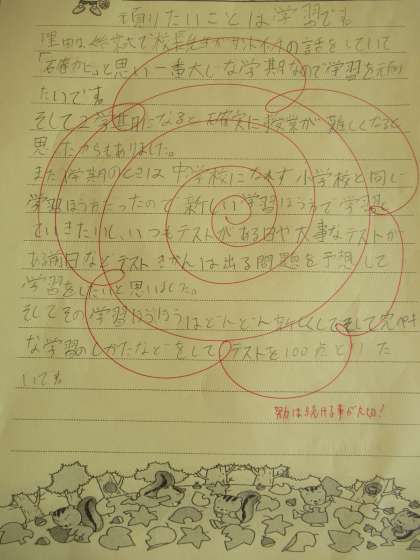 頑りたいことは学習です
理由は終業式で校長先生がサンドイッチの話をしていて
「確かに」と思い一番大じな学期なので学習を
たいです
そして2学期になると確実に授業が難しくなると
思ったからもありました。
また1学期のときは中学校になれず小学校と同じ
学習ほう方だったので新しい学習ほう方で学習
いきたいし、いつもテストがある日や大事なテストが
ある前日などテストきかんは出る問題を予想して
学習をしたいと思いました。
そしてその学習ほうほうはどんどん新しくしてそして完ペキ
な学習のしかたなどをしてテストを100点といた
いです
努力は続ける事が大切！